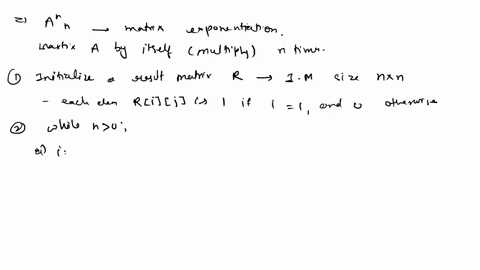 =) Aⁿn → matrix exponentiation.
matrix A by itself (multiply) n times.
① Initialize a result matrix R → I.M size n×n
- each elem R[i][j] is 1 if i = 1, and 0 otherwise
② while n>0;
a) i: